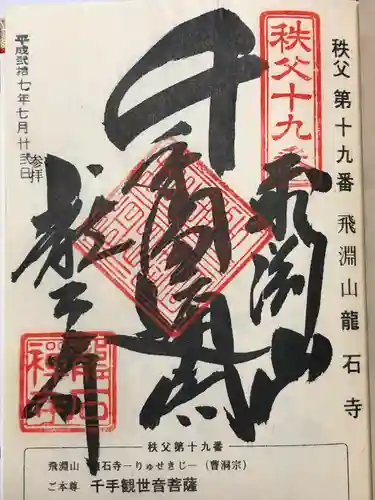 秩父 第十九番 飛淵山 龍石寺
秩父十九番
飛渕山
千手
龍石寺
平成弐拾七年七月廿弐日
参拝
秩父第十九番
飛淵山 龍石寺―りゅせきじ―(曹洞宗)
ご本尊 千手観世音菩薩